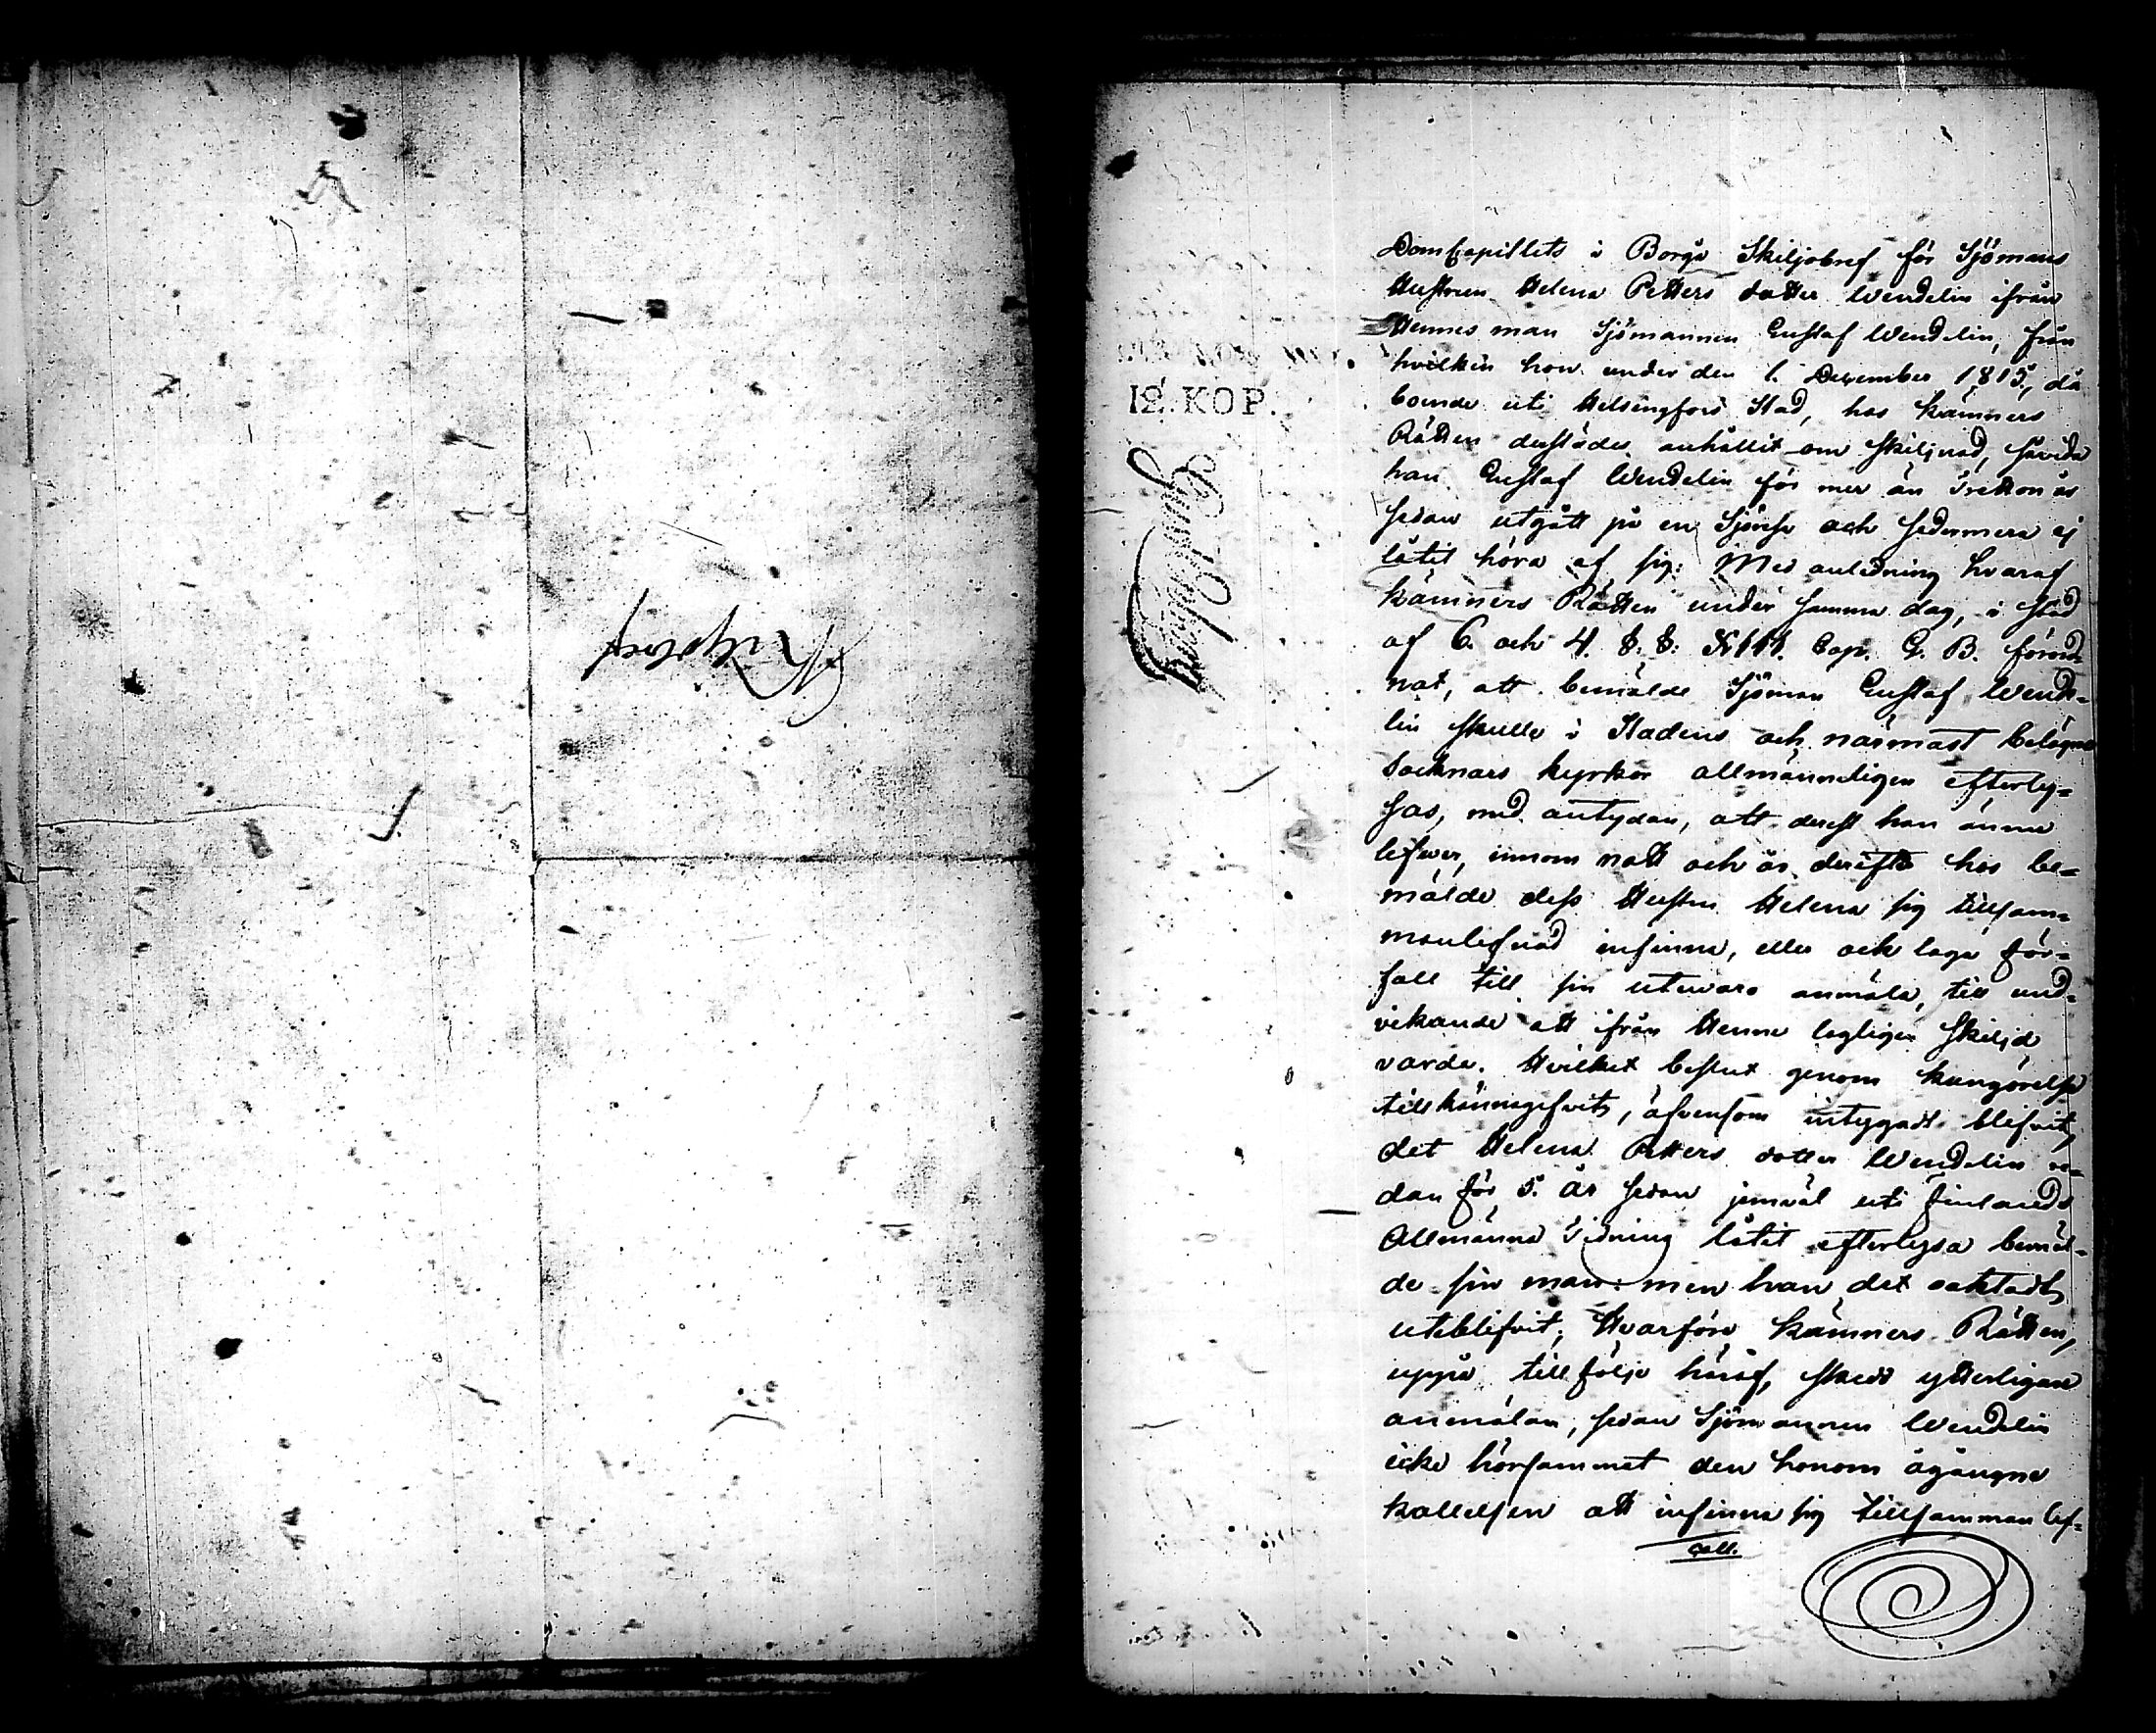 DomCapitlets i Borgå Skiljobref för Sjömans
Hustrun Helena Petters dotter Wendelin ifrån
Hennes man Sjömannen Gustaf Wendelin, från
hvilken hon under den 1. December 1815, då
boende uti Helsingfors Stad, hos Kämners
Rätten derstädes anhållit om Skiljnad, såvida
han Gustaf Wendelin för mer än Tretton år
sedan utgått på en Sjöresa och sedermera ej
låtit höra af sig: Med anledning hvaraf
Kämners Rätten under samma dag, i stöd
af 6. och 4. §. §. XIII. Cap. G. B. förord-
nat, att bemälde Sjöman Gustaf Wende-
lin skulle i Stadens och närmast belägne
Socknars kyrkor allmänneligen efterly-
sas, med antydan, att derest han ännu
lefwer, innom natt och år derefter hos be-
mälde dess Hustru Helena sig till sam-
manlefnad infinna, eller ock laga för-
fall till sin utewaro anmäla, till und-
vikande att ifrån Henne lagligen Skiljd
varda. Hvilket beslut genom kungörelse
tillkännagifvits, äfvensom intygadt blifvit,
det Helena Petters dotter Wendelin re-
dan för 5. år sedan jemväl uti Finlands
Allmänna Tidning låtit efterlysa bemäl-
de sin man: men han det oaktadt
uteblifvit; Hvarföre Kämners Rätten,
uppå till följe häraf, skedd ytterligare
anmälan, sedan Sjömannen Wendelin
icke hörsammat den honom ågångne
kallelsen att infinna sig till samman lef-
Coll.
12. KOP.